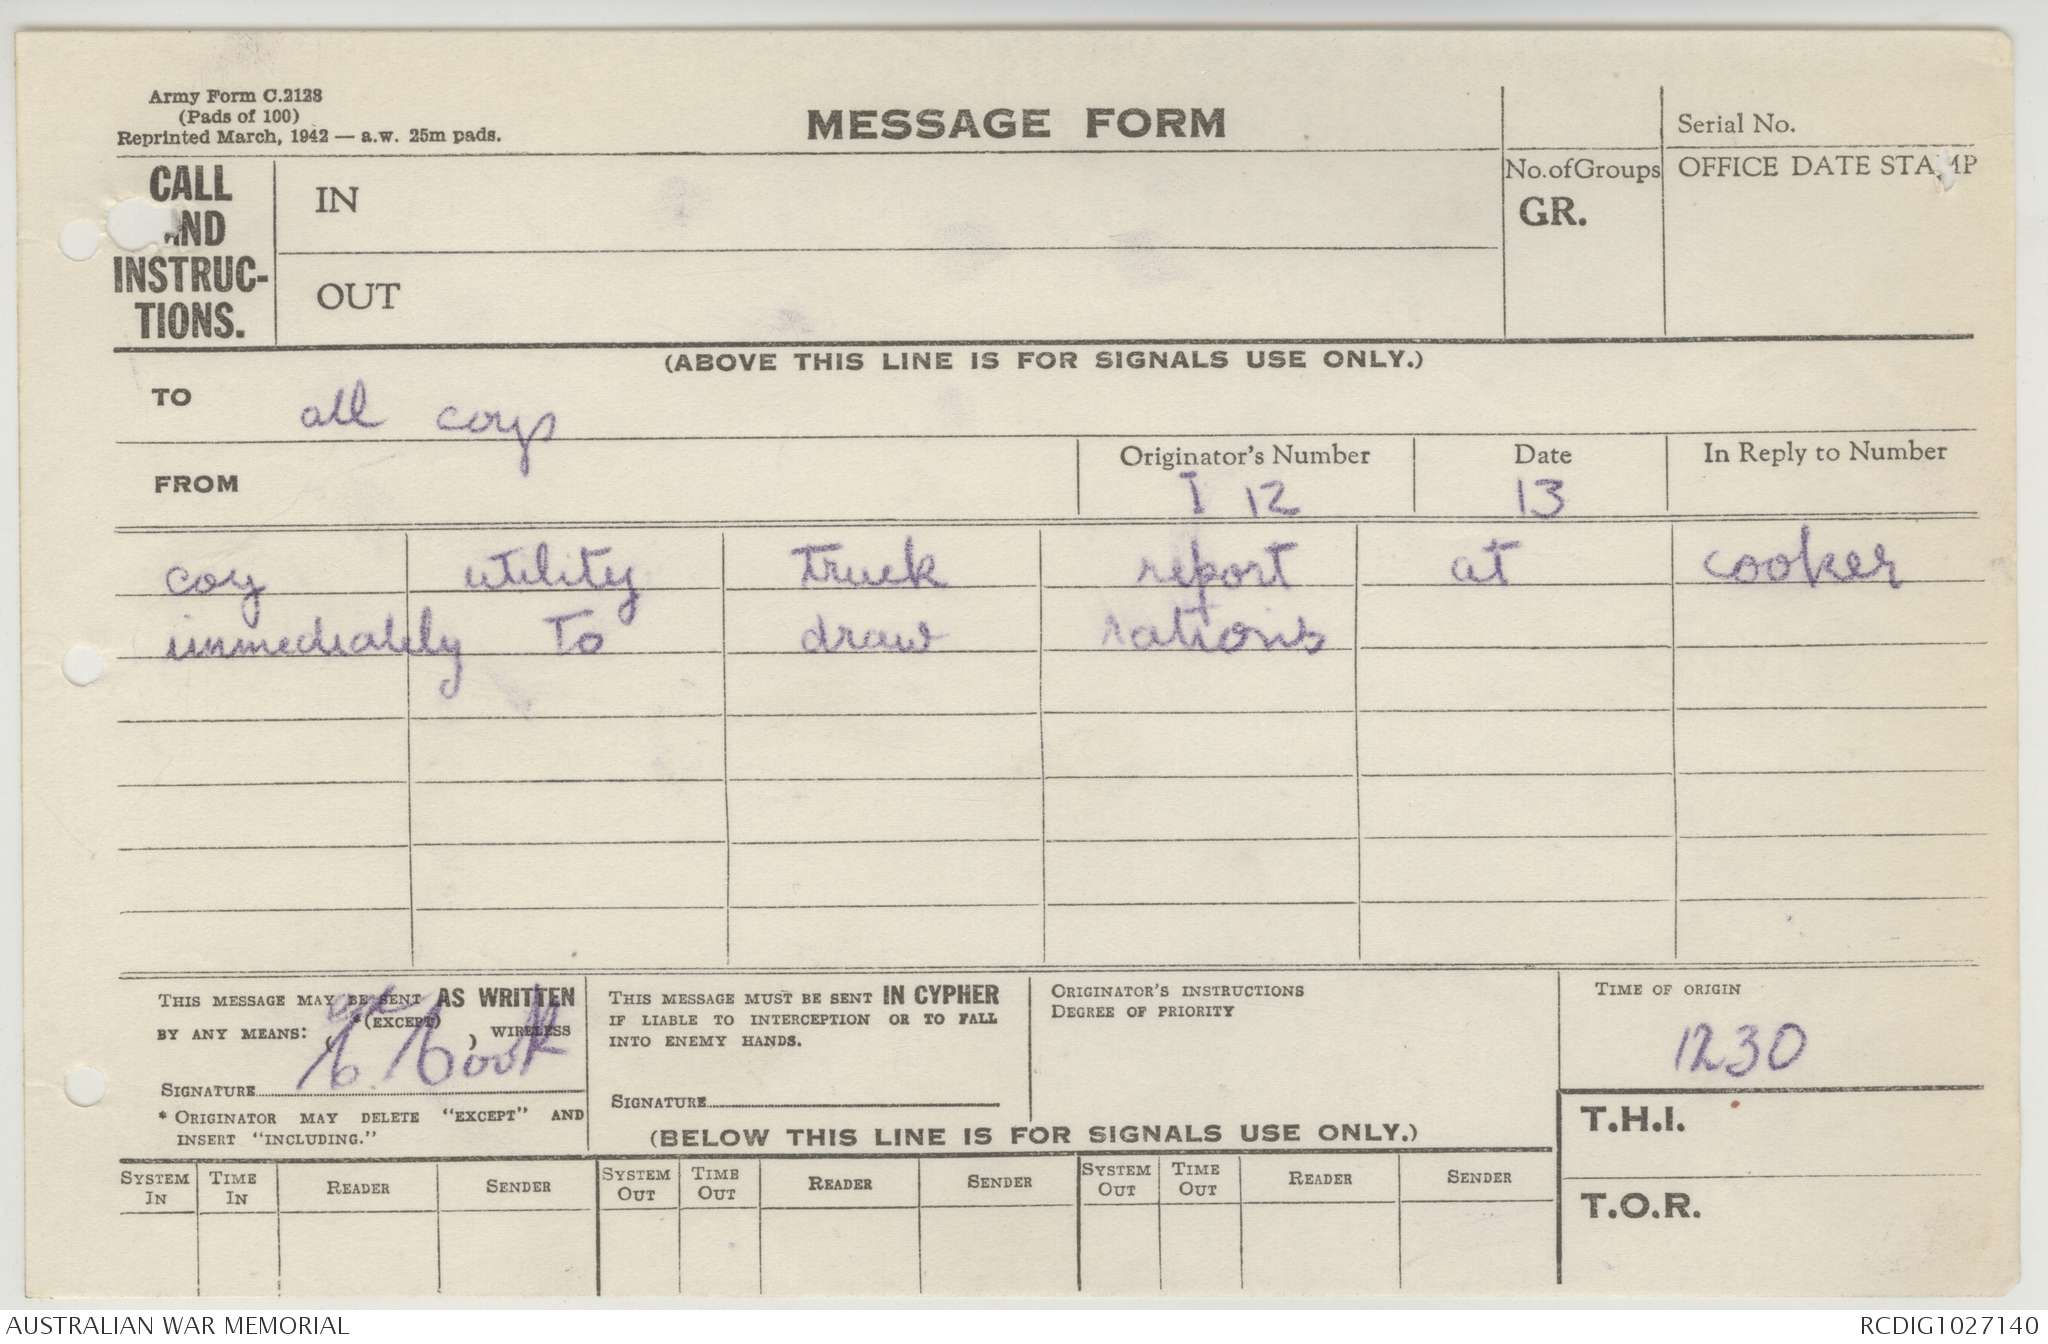 Army Form C.2128
(Pads of 100)
Reprinted March, 1942 — a.w. 25m pads.
MESSAGE FORM
Serial No.
CALL
AND
INSTRUC-
TIONS.
IN
OUT
No. of Groups
GR.
OFFICE DATE STAMP
(ABOVE THIS LINE IS FOR SIGNALS USE ONLY.)
TO all coys
FROM
Originator's Number
I 12
Date
13
In Reply to Number
coy utility truck report at cooker
immediately to draw rations
THIS MESSAGE MAY BE SENT AS WRITTEN
BY ANY MEANS: *(EXCEPT) ( ) WIRELESS
SIGNATURE
* ORIGINATOR MAY DELETE "EXCEPT" AND
INSERT "INCLUDING."
THIS MESSAGE MUST BE SENT IN CYPHER
IF LIABLE TO INTERCEPTION OR TO FALL
INTO ENEMY HANDS.
SIGNATURE
ORIGINATOR'S INSTRUCTIONS
DEGREE OF PRIORITY
TIME OF ORIGIN
1230
T.H.I.
T.O.R.
(BELOW THIS LINE IS FOR SIGNALS USE ONLY.)
SYSTEM IN TIME IN READER SENDER SYSTEM OUT TIME OUT READER SENDER SYSTEM OUT TIME OUT READER SENDER
AUSTRALIAN WAR MEMORIAL
RCDIG1027140